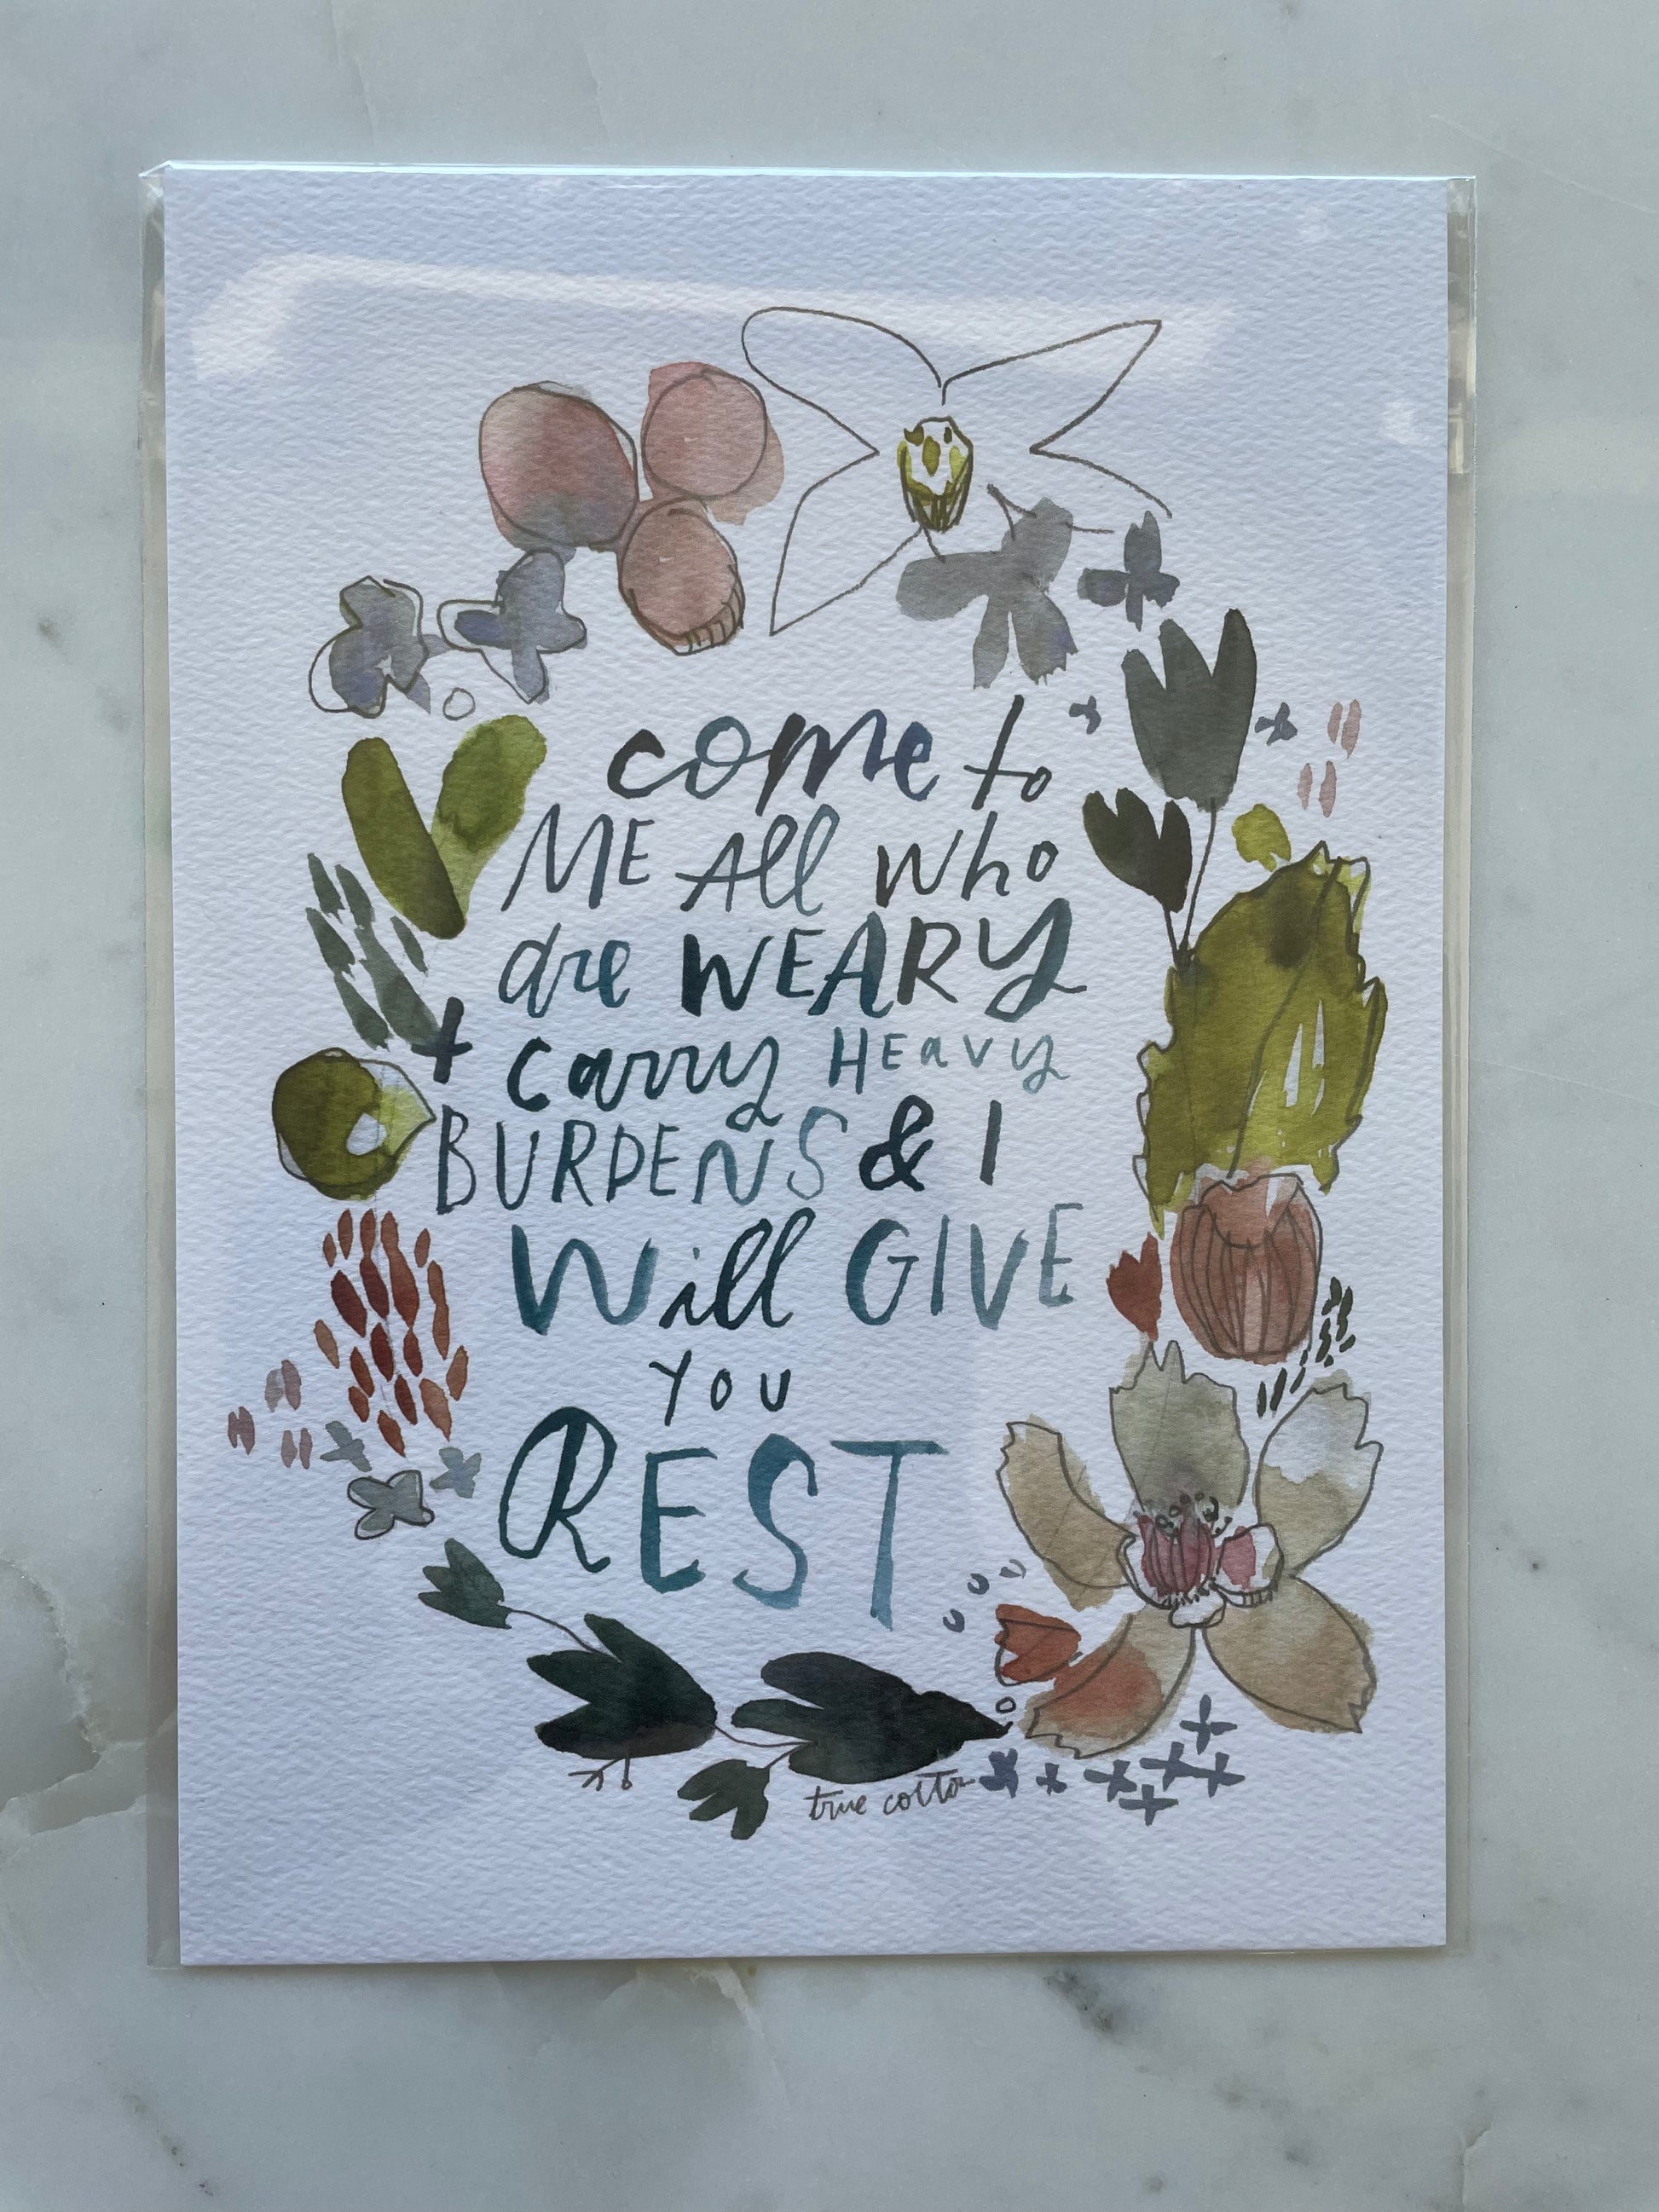 come to
ME All who
are WEARY
+ carry HEavy
BURDENS & I
Will GIVE
you
REST
true cotton